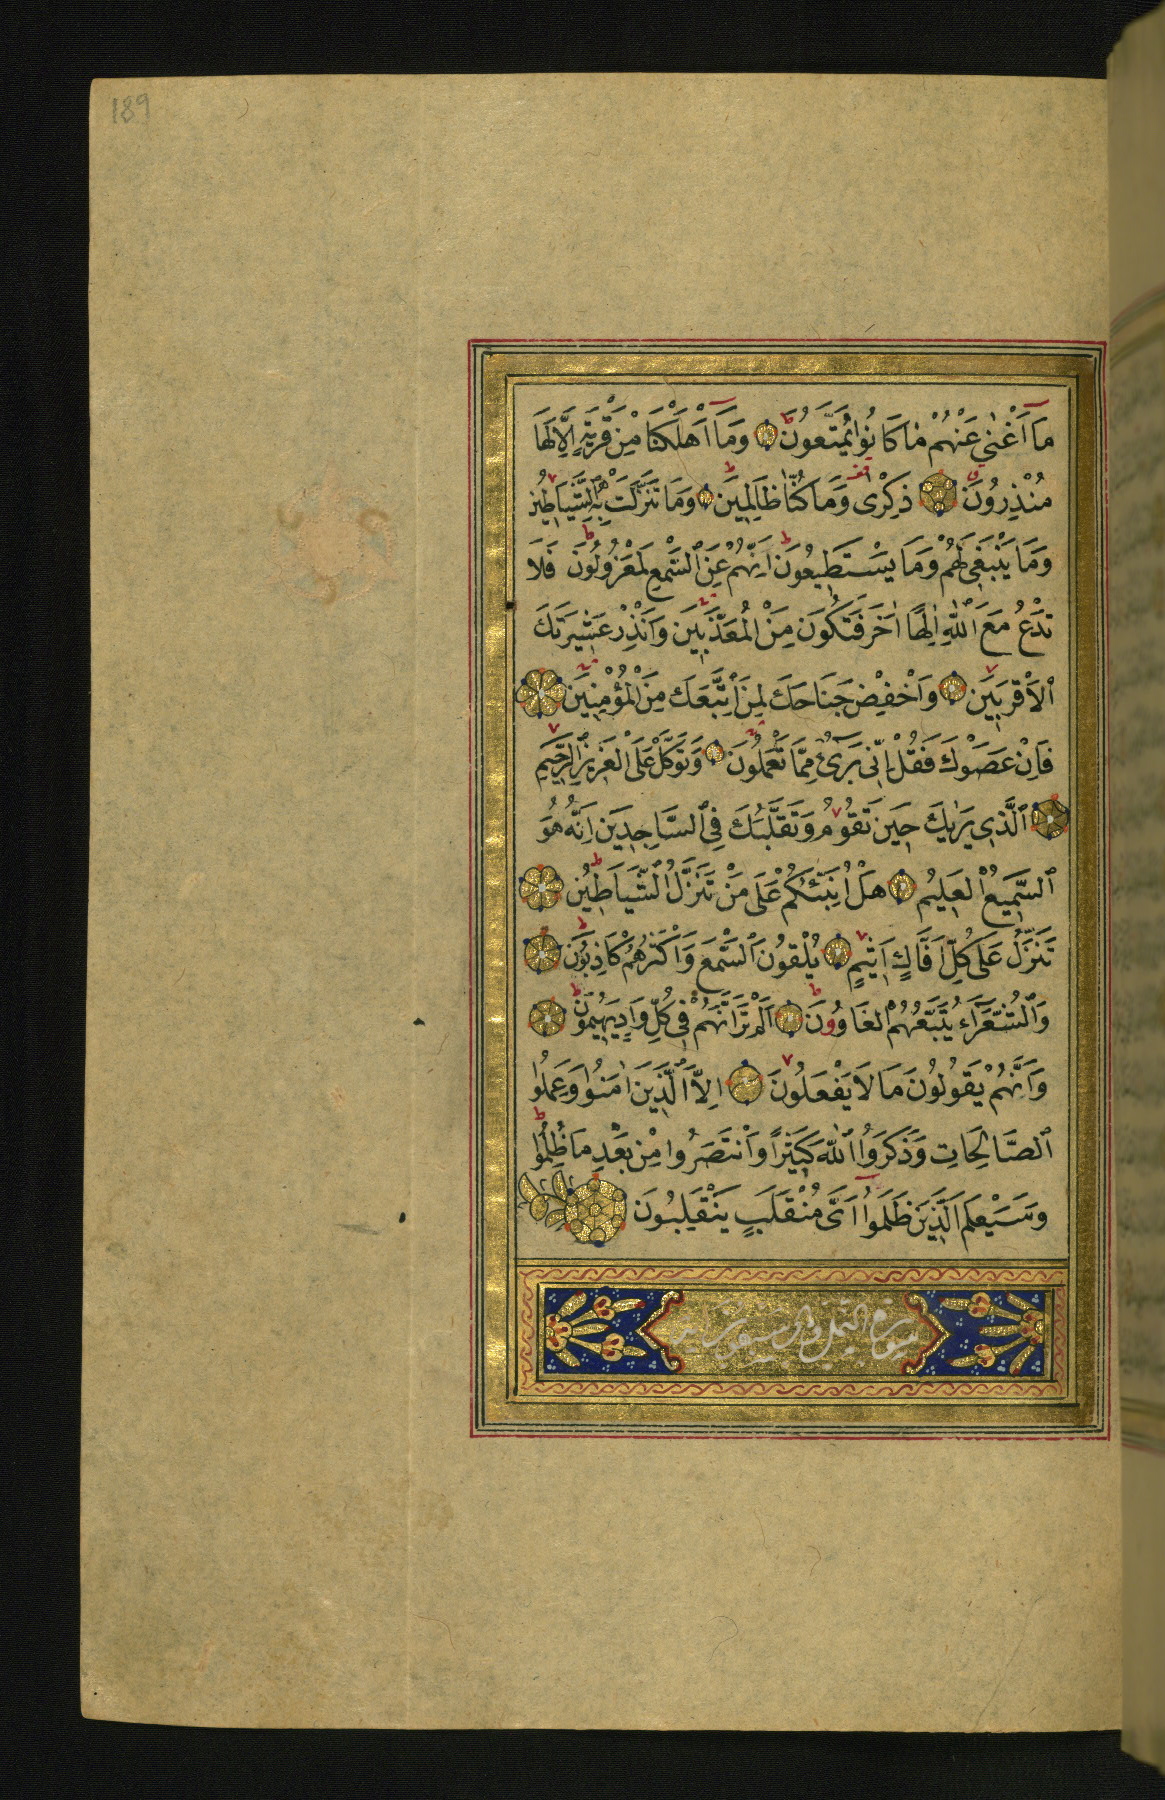 189
مَآ اَغْنٰى عَنْهُمْ مَا كَانُوا يُمَتَّعُونَ وَمَآ اَهْلَكْنَا مِنْ قَرْيَةٍ اِلَّا لَهَا
مُنْذِرُونَ ذِكْرٰى وَمَا كُنَّا ظَالِمِينَ وَمَا تَنَزَّلَتْ بِهِ الشَّيَاطِينُ
وَمَا يَنْبَغِى لَهُمْ وَمَا يَسْتَطِيعُونَ اِنَّهُمْ عَنِ السَّمْعِ لَمَعْزُولُونَ فَلَا
تَدْعُ مَعَ اللّٰهِ اِلٰهًا اٰخَرَ فَتَكُونَ مِنَ الْمُعَذَّبِينَ وَاَنْذِرْ عَشِيرَتَكَ
الْاَقْرَبِينَ وَاخْفِضْ جَنَاحَكَ لِمَنِ اتَّبَعَكَ مِنَ الْمُؤْمِنِينَ
فَاِنْ عَصَوْكَ فَقُلْ اِنِّى بَرِىٓءٌ مِمَّا تَعْمَلُونَ وَتَوَكَّلْ عَلَى الْعَزِيزِ الرَّحِيمِ
الَّذِى يَرٰيكَ حِينَ تَقُومُ وَتَقَلُّبَكَ فِى السَّاجِدِينَ اِنَّهُ هُوَ
السَّمِيعُ الْعَلِيمُ هَلْ اُنَبِّئُكُمْ عَلٰى مَنْ تَنَزَّلُ الشَّيَاطِينُ
تَنَزَّلُ عَلٰى كُلِّ اَفَّاكٍ اَثِيمٍ يُلْقُونَ السَّمْعَ وَاَكْثَرُهُمْ كَاذِبُونَ
وَالشُّعَرَآءُ يَتَّبِعُهُمُ الْغَاوُونَ اَلَمْ تَرَ اَنَّهُمْ فِى كُلِّ وَادٍ يَهِيمُونَ
وَاَنَّهُمْ يَقُولُونَ مَا لَا يَفْعَلُونَ اِلَّا الَّذِينَ اٰمَنُوا وَعَمِلُوا
الصَّالِحَاتِ وَذَكَرُوا اللّٰهَ كَثِيرًا وَانْتَصَرُوا مِنْ بَعْدِ مَا ظُلِمُوا
وَسَيَعْلَمُ الَّذِينَ ظَلَمُوٓا اَىَّ مُنْقَلَبٍ يَنْقَلِبُونَ
سورة النمل